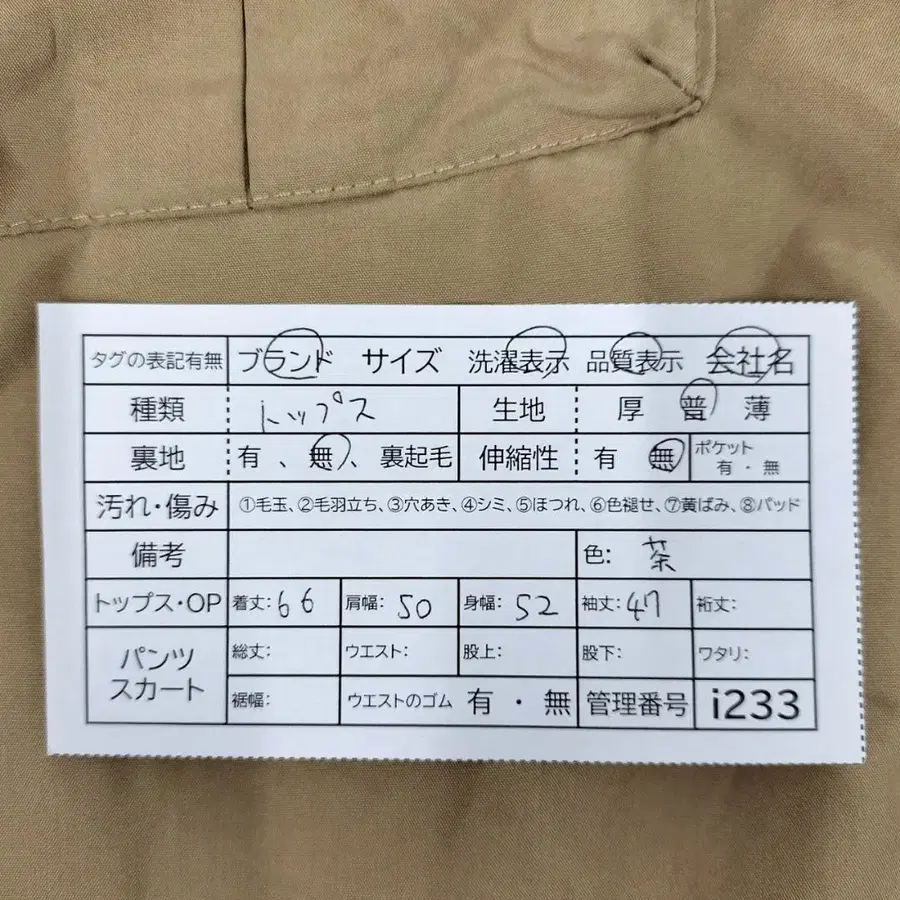 タグの表記有無 ブランド サイズ 洗濯表示 品質表示 会社名
種類 トップス 生地 厚 普 薄
裏地 有、無、裏起毛 伸縮性 有 無 ポケット 有・無
汚れ・傷み ①毛玉、②毛羽立ち、③穴あき、④シミ、⑤ほつれ、⑥色褪せ、⑦黄ばみ、⑧パッド
備考 色: 茶
トップス・OP 着丈:66 肩幅:50 身幅:52 袖丈:47 裄丈:
パンツ スカート 総丈: ウエスト: 股上: 股下: ワタリ:
裾幅: ウエストのゴム 有・無 管理番号 i233